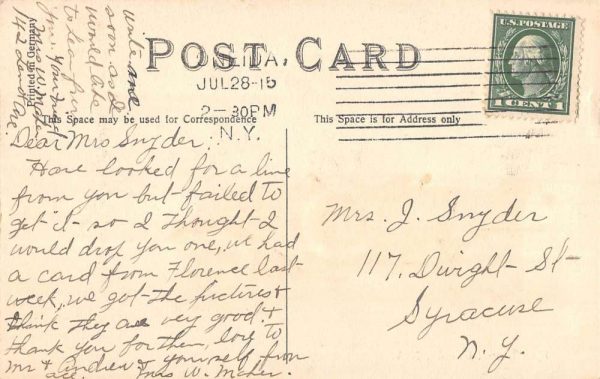 POST CARD
U.S. POSTAGE
1 CENT 1
JUL 28-15
2-30PM
N.Y.
Printed in Germany
This Space may be used for Correspondence
This Space is for Address only
Dear Mrs Snyder
Have looked for a line
from you but failed to
get it so I thought I
would drop you one, we had
a card from Florence last
week, we got the pictures &
think they are very good &
thank you for them, love to
Mr & Andrew & yourself from
all. Mrs W.
write and
soon as I
would like
to hear from
you. your friend
Mrs W.
142
Mrs. J. Snyder
117. Dwight St
Syracuse
N. Y.